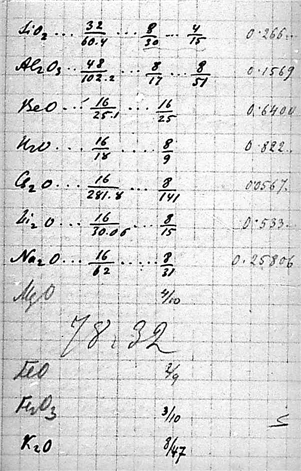 SiO₂ ... 32/60.4 ... 8/30 ... 4/15 0.266...
Al₂O₃ ... 48/102.2 ... 8/17 ... 8/51 0.1569
BeO ... 16/25.1 ... 16/25 0.6400
H₂O ... 16/18 ... 8/9 0.822..
Cs₂O ... 16/281.8 ... 8/141 0.0567..
Li₂O ... 16/30.06 ... 8/15 0.533...
Na₂O ... 16/62 ... 8/31 0.25806
MgO 4/10
78.32
FeO 2/9
Fe₂O₃ 3/10 ≤
K₂O 8/47